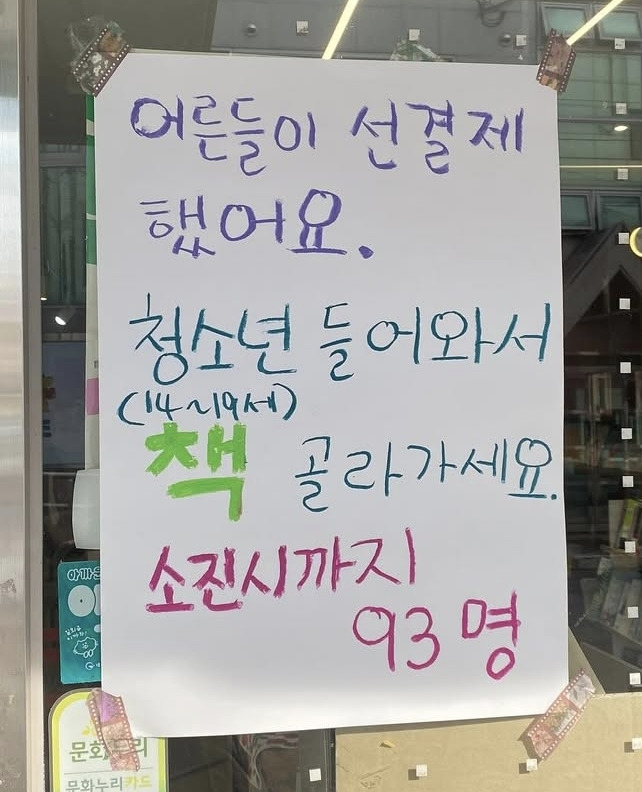 어른들이 선결제
했어요.
청소년 들어와서
(14~19세)
책 골라가세요.
소진시까지
93명
문화누리
문화누리카드